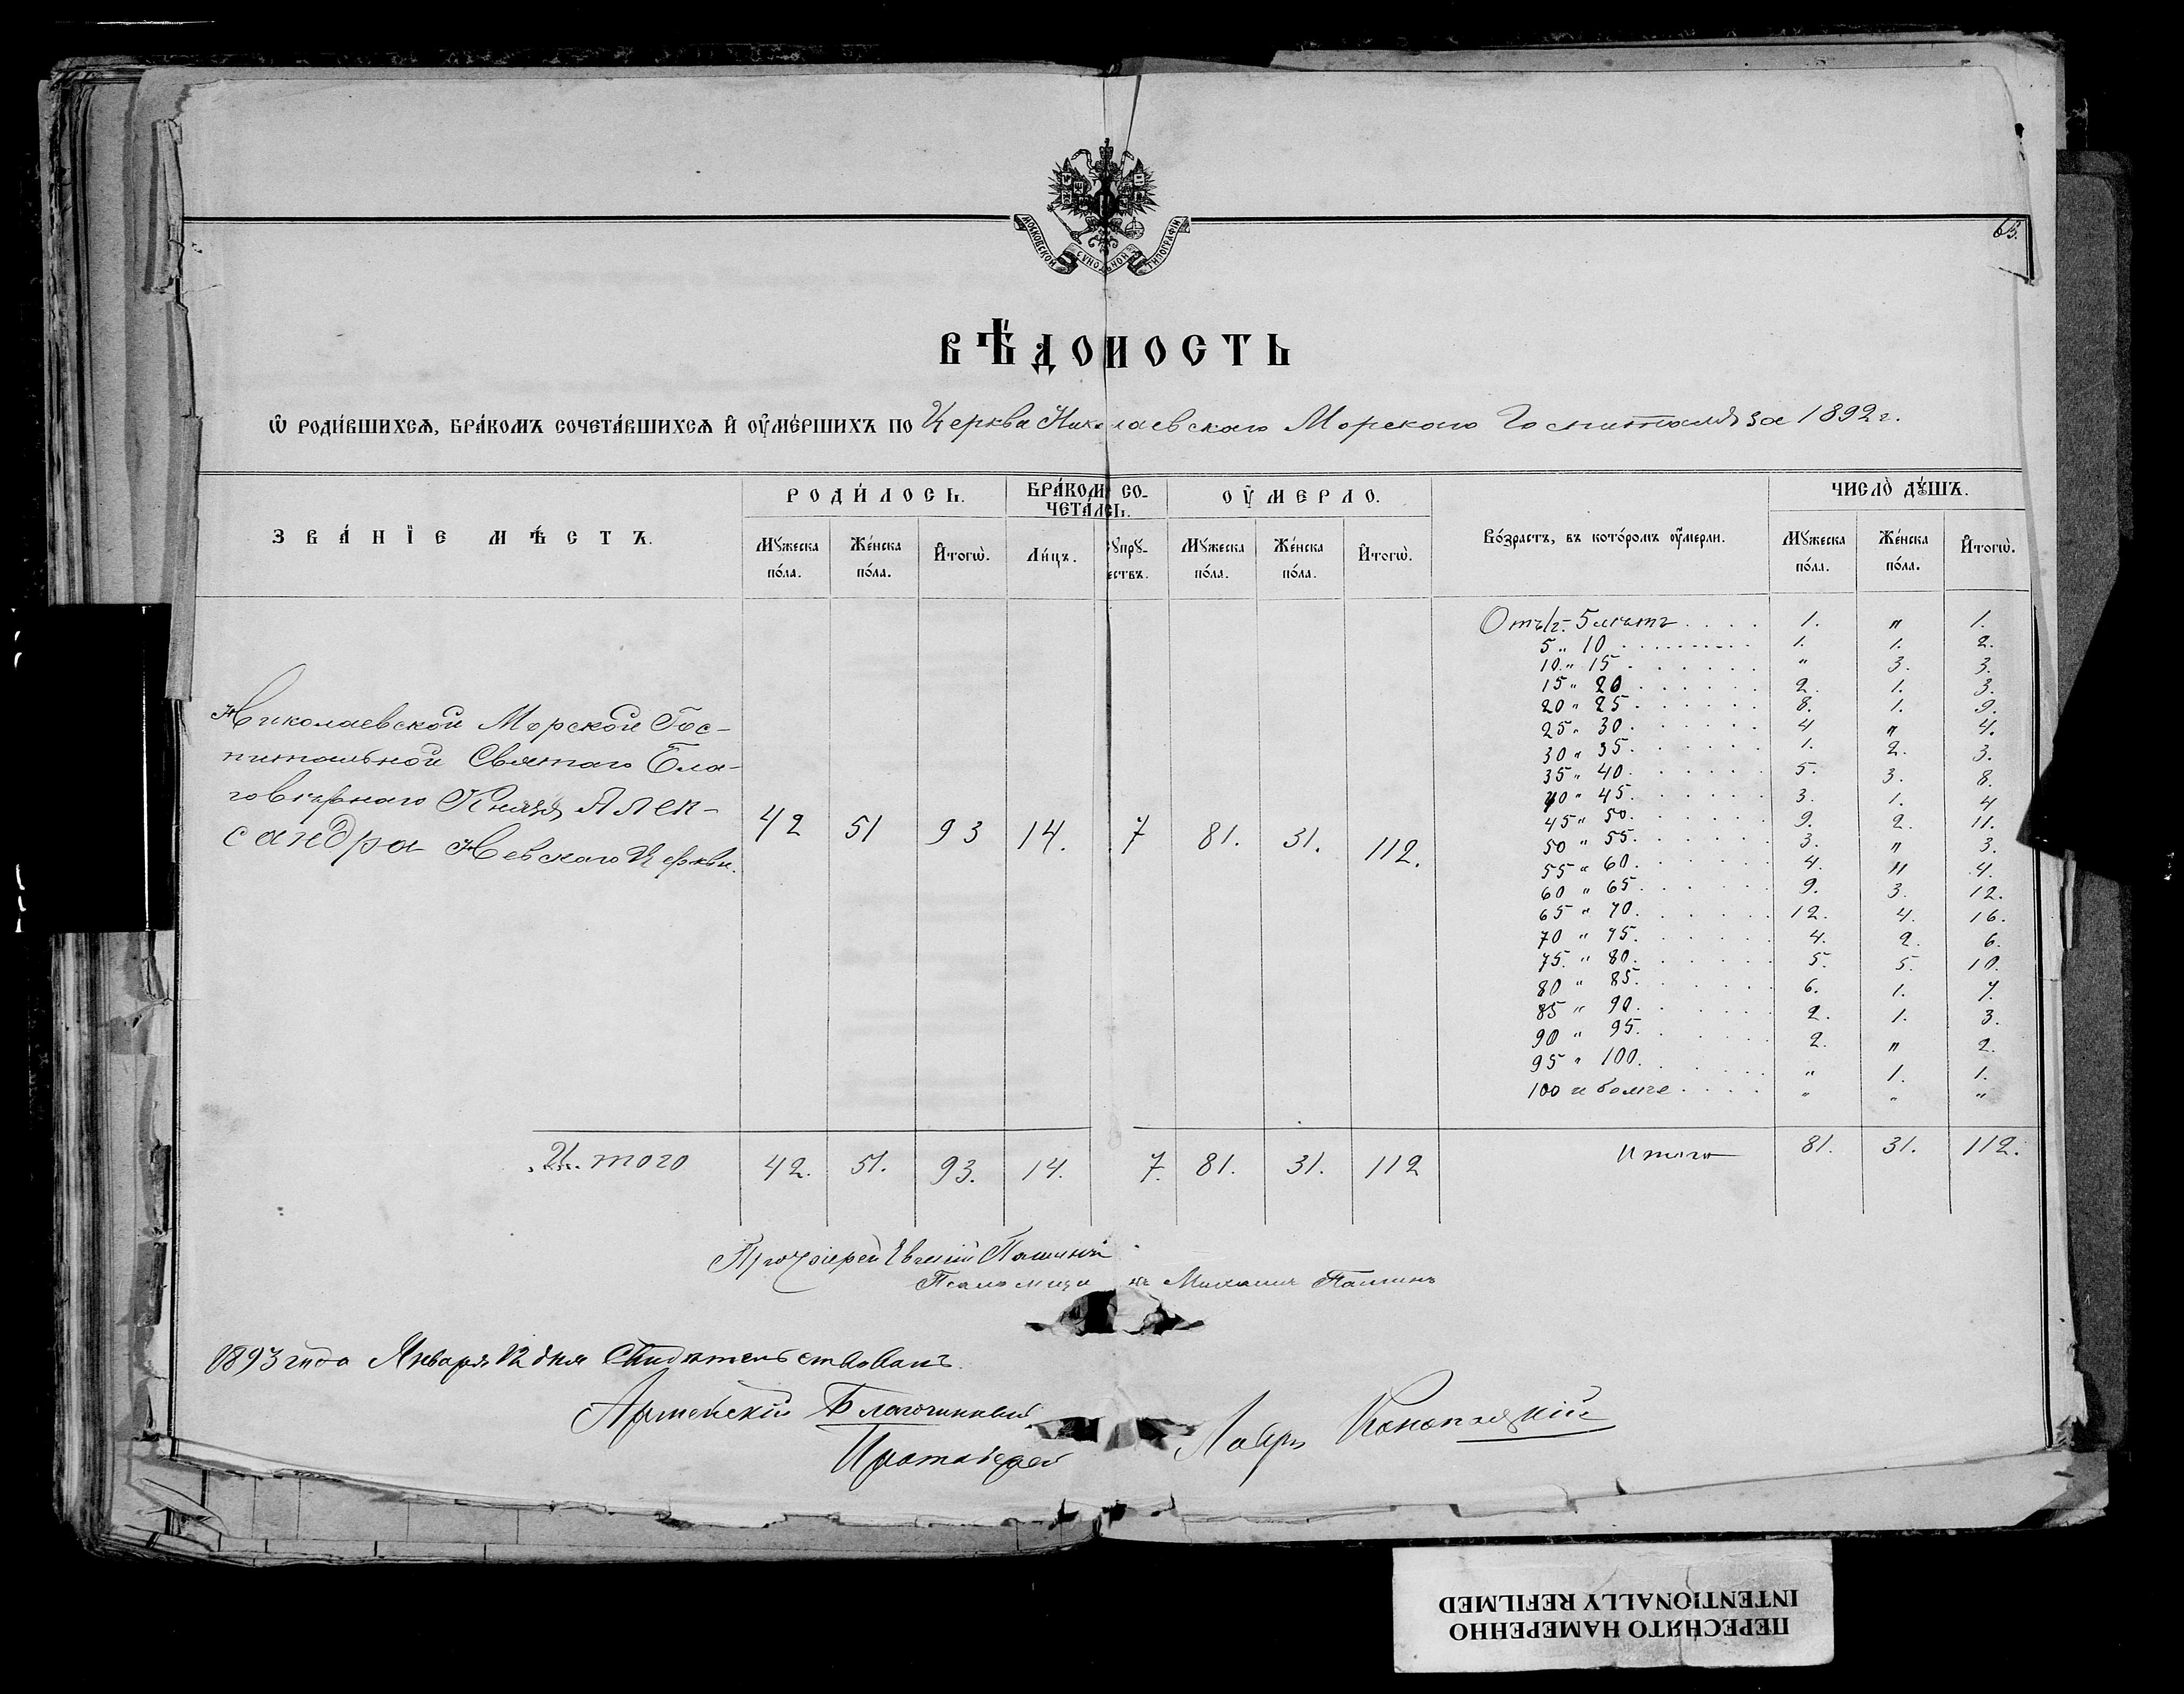 МОСКОВСКОЙ СѴНОДАЛЬНОЙ ТИПОГРАФІИ
ВѢДОМОСТЬ
Ѡ РОДИ́ВШИХСѦ, БРА́КОМЪ СОЧЕТА́ВШИХСѦ И҆ ОУ҆МЕ́РШИХЪ ПО Церкви Николаевскаго Морского Госпиталя за 1892 г.
ЗВА́НЇЕ МѢ́СТЪ. РОДИ́ЛОСЬ. БРА́КОМЪ СО- ОУ҆МЕРЛО. Во́зрастъ, въ кото́ромъ оу҆мерли. ЧИСЛО̀ ДꙊ́ШЪ.
ЧЕТА́ЛСЬ.
Мꙋжеска по́ла. Же́нска по́ла. И҆тогѡ̀. Ли́цъ. Сꙋпрꙋ-ествъ. Мꙋжеска по́ла. Же́нска по́ла. И҆тогѡ̀. Мꙋжеска по́ла. Же́нска по́ла. И҆тогѡ̀.
Николаевской Морской Гос-
питальной Святаго Бла-
говѣрнаго Князя Алек-
сандра Невскаго Церкви.
42 51 93 14. 7 81. 31. 112.
Отъ 1г.- 5 лѣтъ . . . . 1. " 1.
5 " 10 . . . . 1. 1. 2.
10 " 15 . . . . " 3. 3.
15 " 20 . . . . 2. 1. 3.
20 " 25 . . . . 8. 1. 9.
25 " 30 . . . . 4 " 4.
30 " 35 . . . . 1. 2. 3.
35 " 40 . . . . 5. 3. 8.
40 " 45 . . . . 3. 1. 4
45 " 50 . . . . 9. 2. 11.
50 " 55 . . . . 3. " 3.
55 " 60 . . . . 4. " 4.
60 " 65 . . . . 9. 3. 12.
65 " 70 . . . . 12. 4. 16.
70 " 75 . . . . 4. 2. 6.
75 " 80 . . . . 5. 5. 10.
80 " 85 . . . . 6. 1. 7.
85 " 90 . . . . 2. 1. 3.
90 " 95 . . . . 2. " 2.
95 " 100 . . . . " 1. 1.
100 и болѣе . . . . " " "
Итого 42. 51. 93. 14. 7. 81. 31. 112 Итого 81. 31. 112.
Протоіерей Пашинъ
Псаломщикъ Михаилъ Пашинъ
1893 года Января 12 дня Свидѣтельствовалъ
Армейскій Благочинный
Протоіерей Лавръ Конопацкій
ПЕРЕСНЯТО НАМЕРЕННО
INTENTIONALLY REFILMED